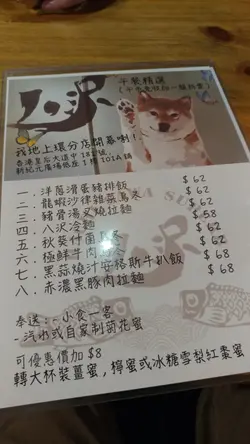 八沢
午餐精選
我地上環分店開幕喇!
香港皇后大道中181號,
新紀元廣場低座1樓101A舖
一. 洋蔥滑蛋豬排飯 $ 62
二. 龍蝦沙律雜菜烏冬 $ 62
三. 豬骨湯叉燒拉麵 $ 62
四. 八沢冷麵 $ 58
五. 秋葵什菌 冬 $ 62
六. 極鮮牛肉 $ 62
七. 黑蒜燒汁安格斯牛扒飯 $ 68
八. 赤濃黑豚肉拉麵 $ 68
奉送:-小食一客
-汽水或自家制菊花蜜
可優惠價加 $8
轉大杯裝薑蜜,檸蜜或冰糖雪梨紅棗蜜